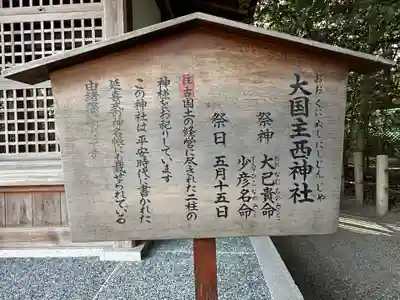 大国主西神社
おおくにぬしにしじんじゃ
祭神 大己貴命
少彦名命
祭日 五月十五日
往古国土の経営に尽された二柱の
神様をお祀りしています
この神社は平安時代に書かれた
延喜式の神名帳にも載せられている
由緒 です